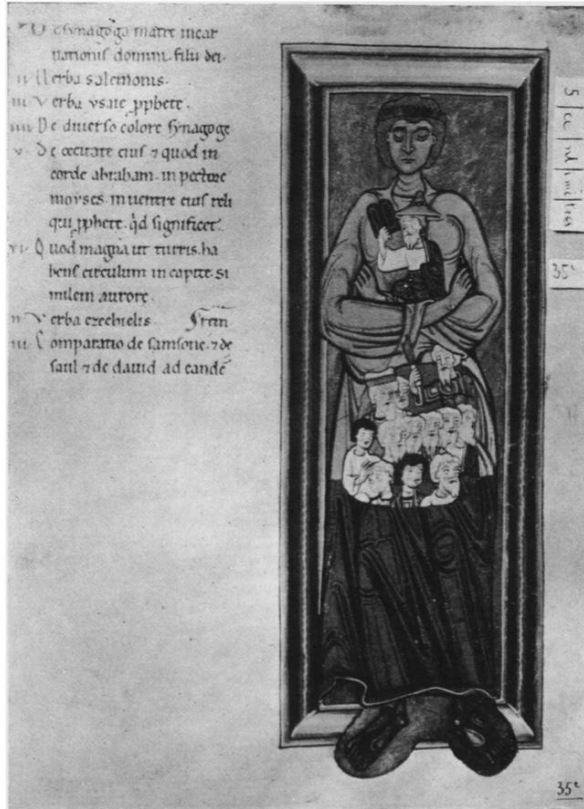 De synagoga matre incar
nationis domini filii dei.
ii Verba salemonis.
iii Verba ysaie pphete.
iiii De diuerso colore synagoge
v De cecitate eius ⁊ quod in
corde abraham. in pectore
moyses. in uentre eius reli
qui pphete. qd significet.
vi Quod magna ut turris. ha
bens circulum in capite. si
milem aurore.
Verba ezechielis
Comparatio de samsone. ⁊ de
saul ⁊ de dauid ad eande
35ʳ
35ʳ